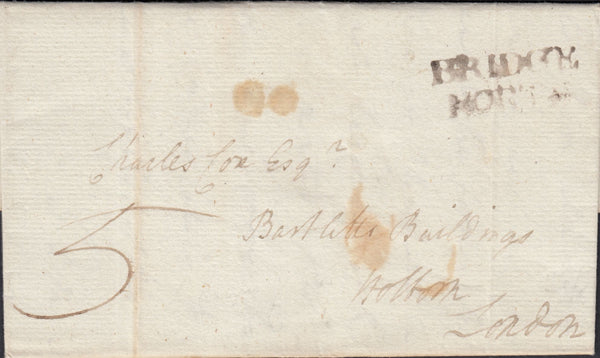 BRIDGE
NORTH
Charles Cox Esqr.
5
Bartletts Buildings
Holborn
London